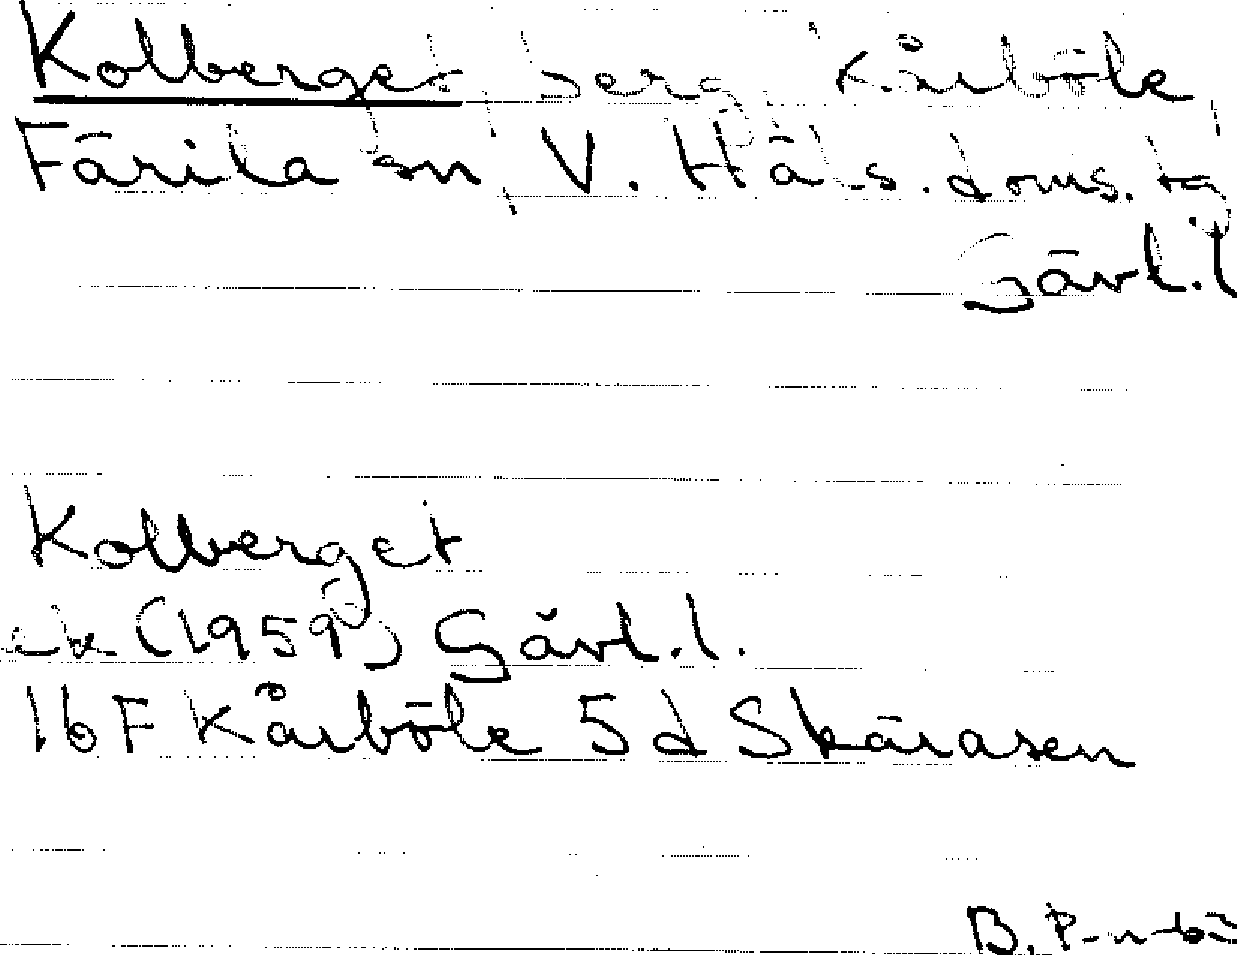 Kolberget, berg, Kårböle,
Färila sn, V. Häls. doms. tg
Gävl. l
Kolberget
ek (1959) Gävl. l.
16 F Kårböle 5 d Skäråsen
B. P-n-bä